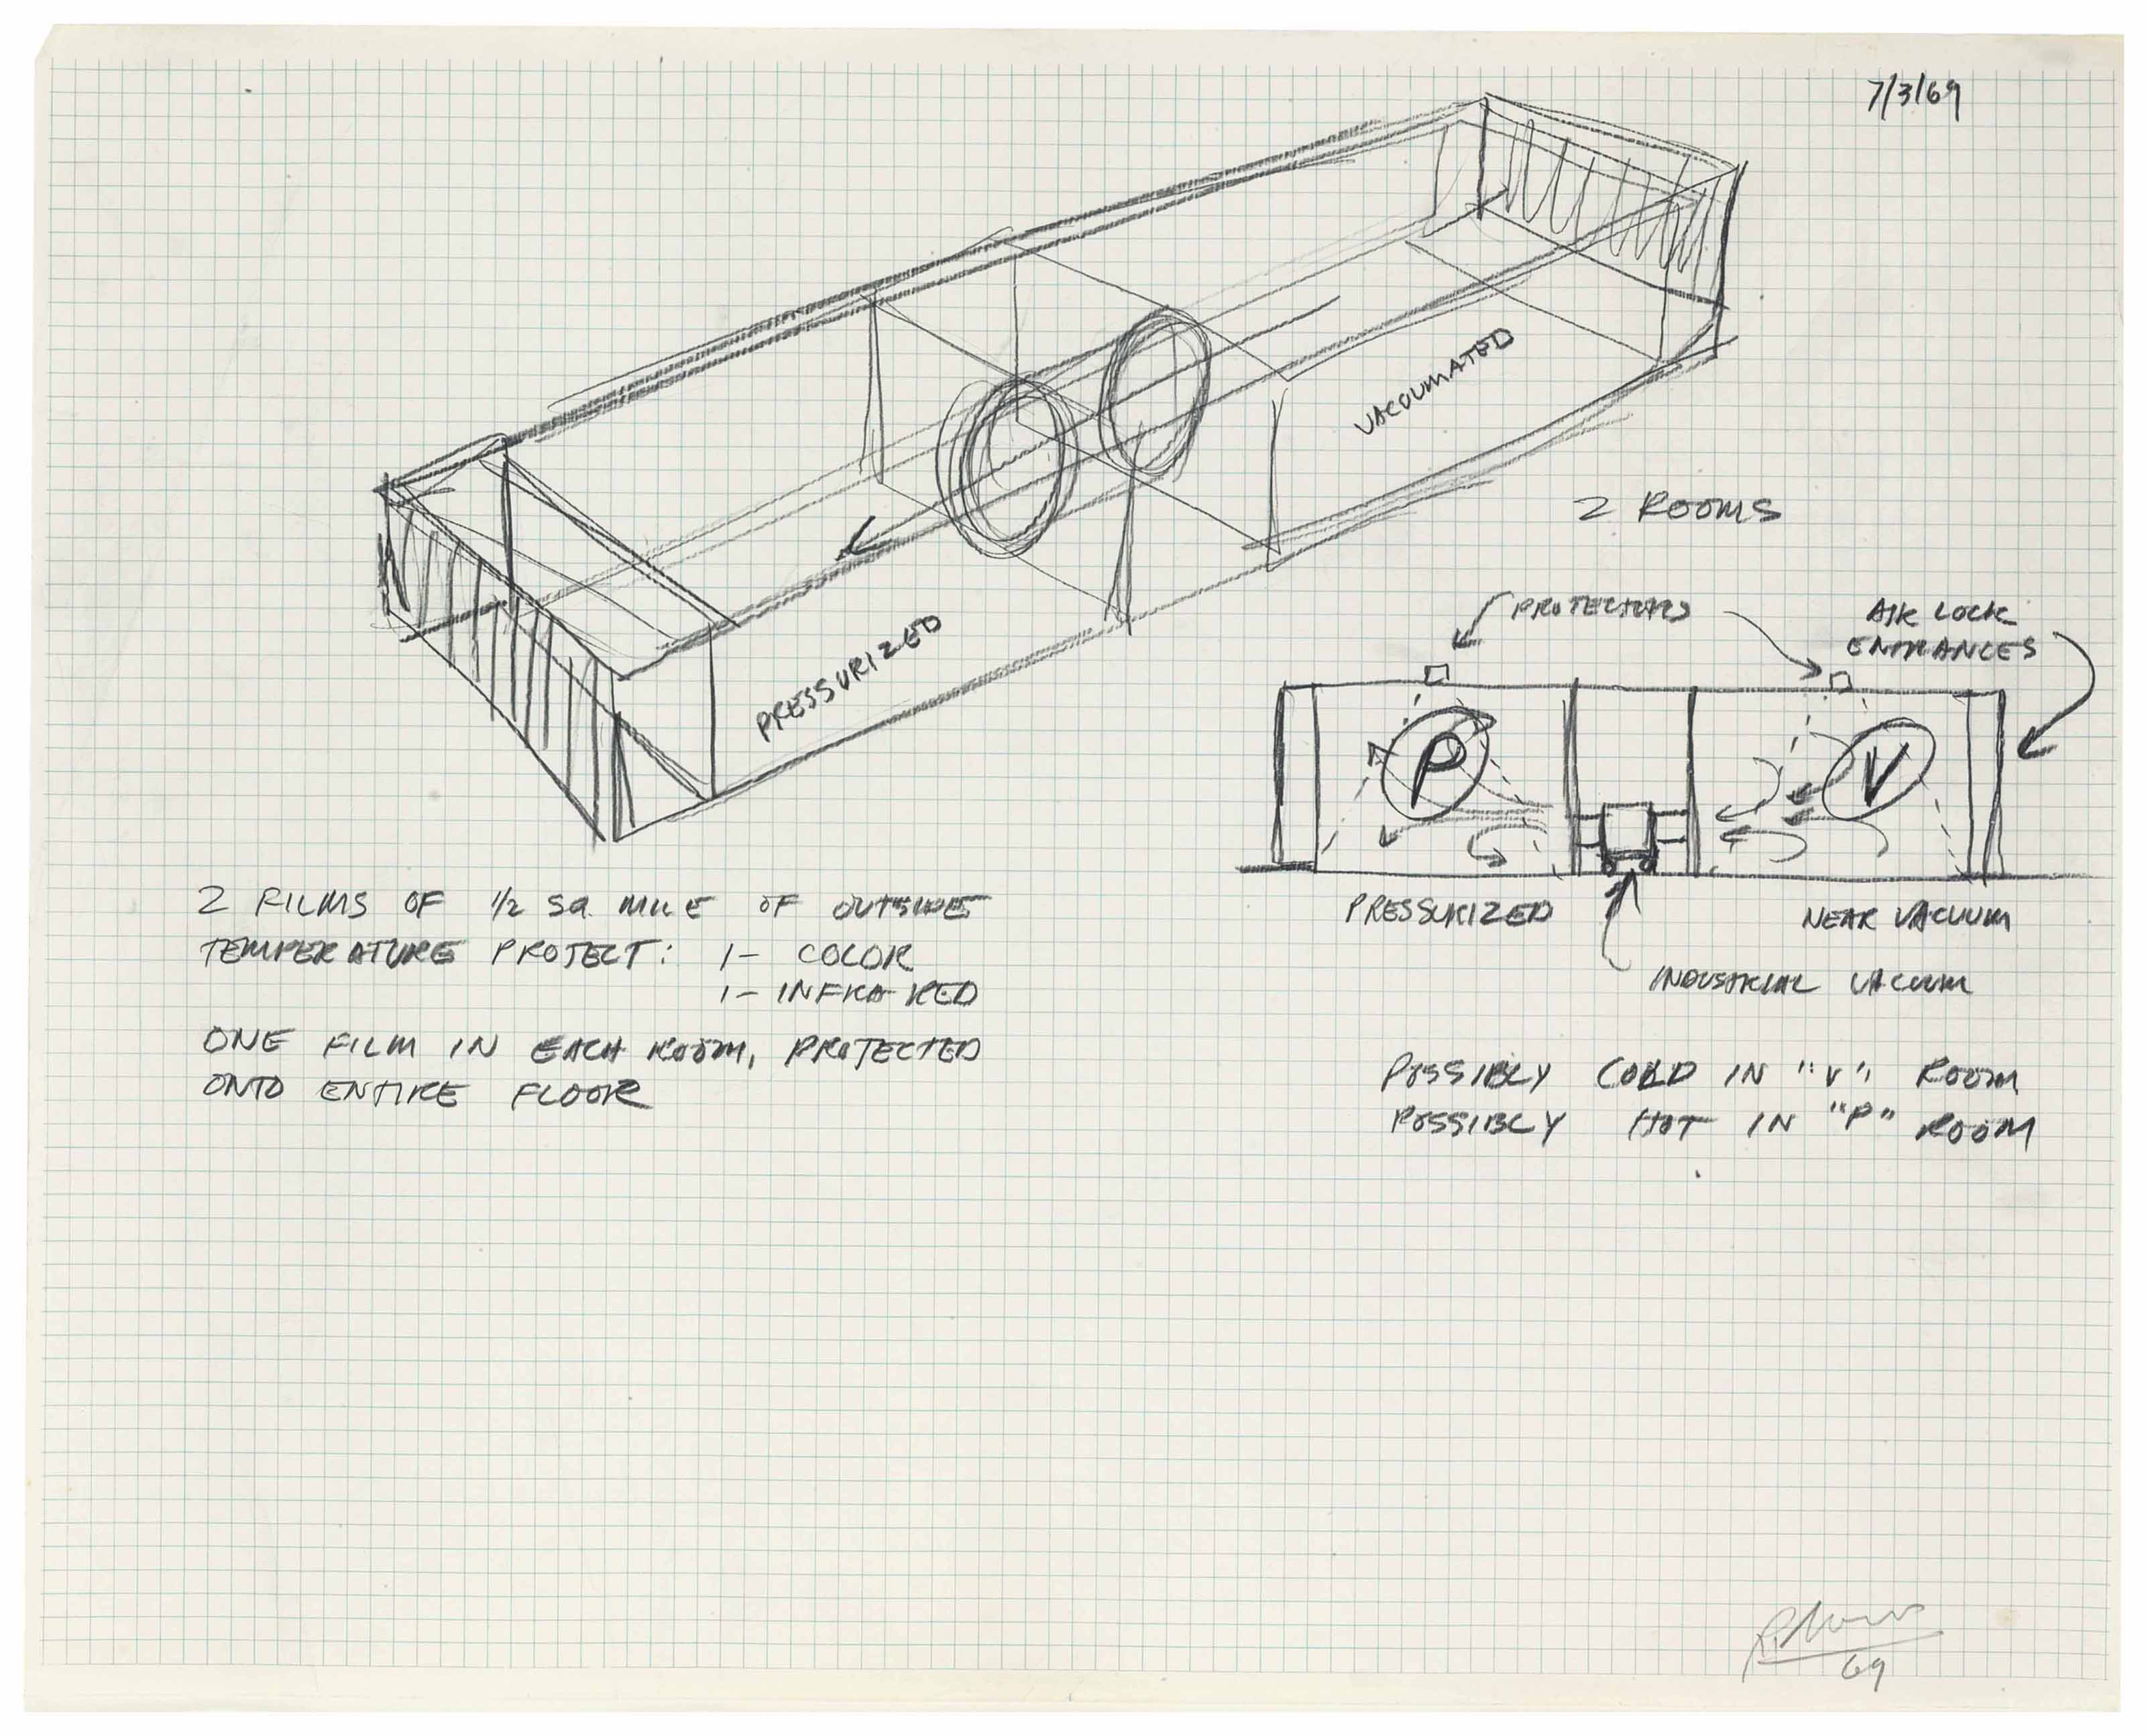 7/3/69
VACUUMATED
PRESSURIZED
2 ROOMS
PROJECTORS
AIR LOCK
ENTRANCES
P
V
PRESSURIZED
NEAR VACUUM
INDUSTRIAL VACUUM
2 FILMS OF 1/2 SQ. MILE OF OUTSIDE
TEMPERATURE PROJECT: 1- COLOR
1- INFRA-RED
ONE FILM IN EACH ROOM, PROJECTED
ONTO ENTIRE FLOOR
POSSIBLY COLD IN "V" ROOM
POSSIBLY HOT IN "P" ROOM
69